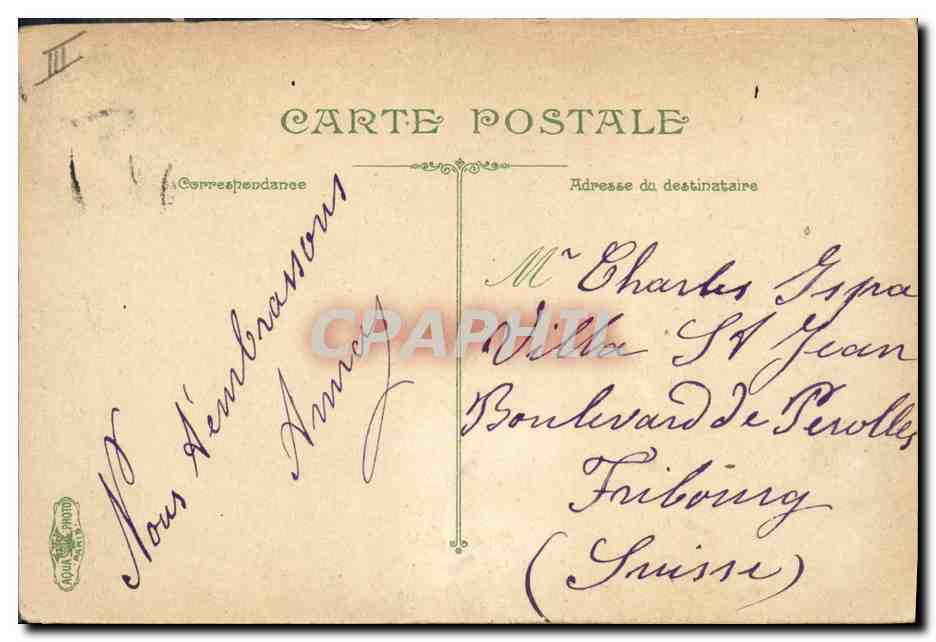 III
CARTE POSTALE
Correspondance
Adresse du destinataire
Nous t'embrassons
Mr Charles Ispa
Villa St Jean
Boulevard de Perolles
Fribourg
(Suisse)
CPAPHIL
AQUA PHOTO
PARIS